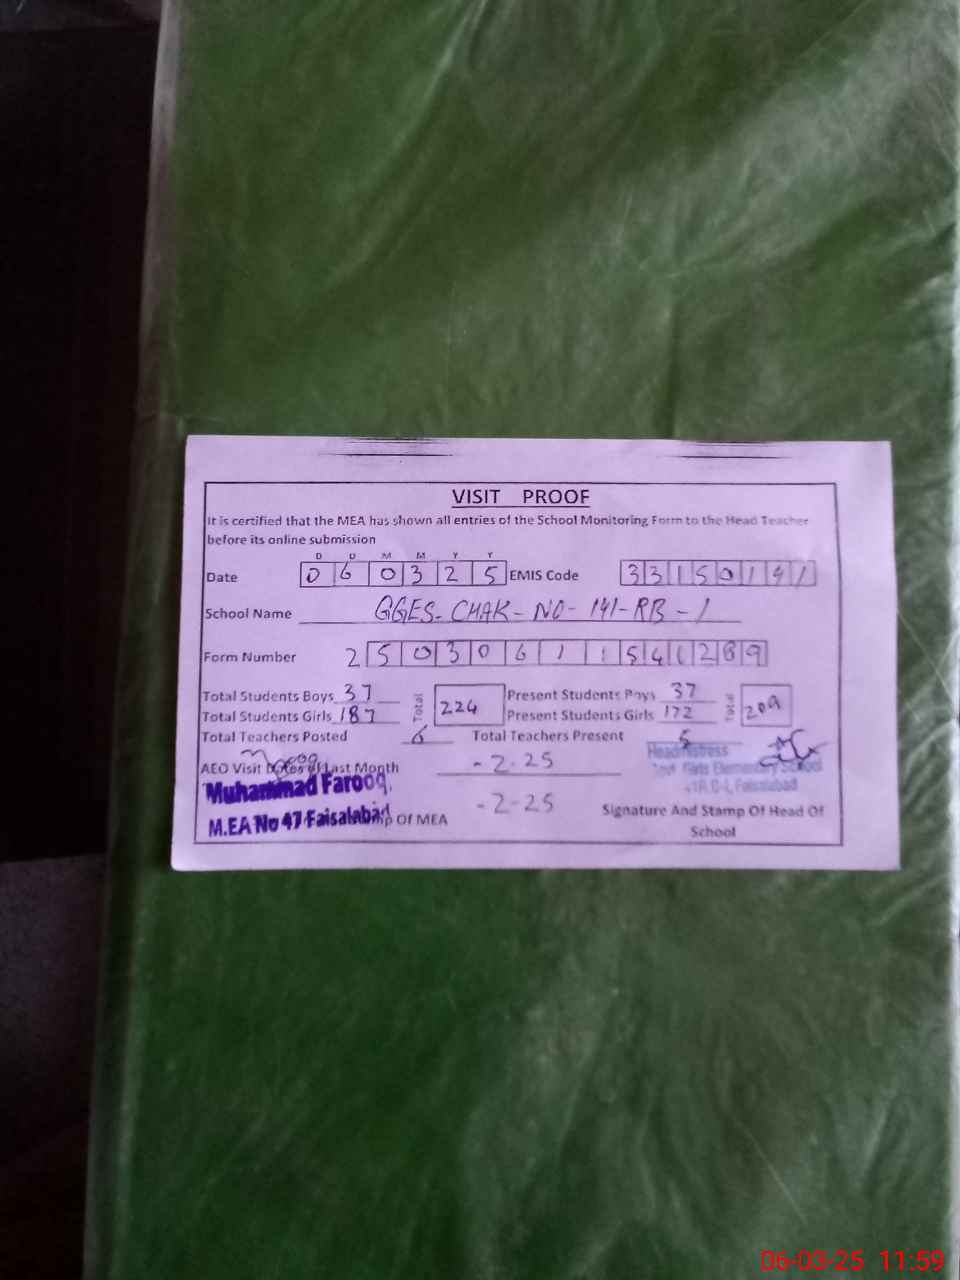 VISIT PROOF
It is certified that the MEA has shown all entries of the School Monitoring Form to the Head Teacher
before its online submission
D D M M Y Y
Date 0 6 0 3 2 5 EMIS Code 3 3 1 5 0 1 4 1
School Name GGES-CHAK-NO-141-RB-1
Form Number 2 5 0 3 0 6 1 1 5 4 1 2 8 9
Total Students Boys 37 Total 224 Present Students Boys 37 Total 209
Total Students Girls 187 Present Students Girls 172
Total Teachers Posted 6 Total Teachers Present 5
AEO Visit Dates of Last Month -2-25
Headmistress
Govt Girls Elementary School
Faisalabad
Muhammad Farooq
M.EA No 47 Faisalabad Of MEA -2-25
Signature And Stamp Of Head Of
School
06-03-25 11:59